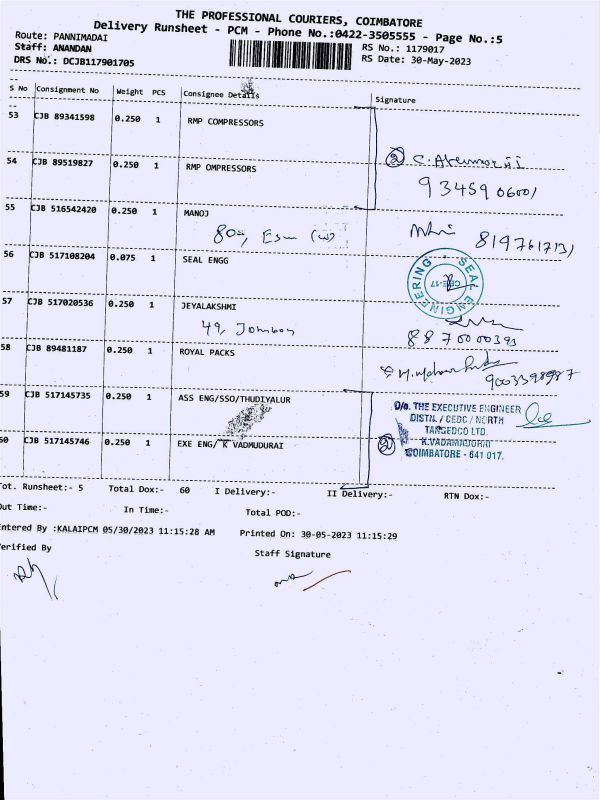 THE PROFESSIONAL COURIERS, COIMBATORE
Delivery Runsheet - PCM - Phone No.:0422-3505555 - Page No.:5
Route: PANNIMADAI RS No.: 1179017
Staff: ANANDAN RS Date: 30-May-2023
DRS No.: DCJB117901705
S No Consignment No Weight PCS Consignee Details Signature
53 CJB 89341598 0.250 1 RMP COMPRESSORS
54 CJB 89519827 0.250 1 RMP OMPRESSORS
2
9345906001
55 CJB 516542420 0.250 1 MANOJ
8197617131
56 CJB 517108204 0.075 1 SEAL ENGG
SEAL ENGINEERING
57 CJB 517020536 0.250 1 JEYALAKSHMI
49,
8870000393
58 CJB 89481187 0.250 1 ROYAL PACKS
9003398987
59 CJB 517145735 0.250 1 ASS ENG/SSO/THUDIYALUR
O/o. THE EXECUTIVE ENGINEER
DISTN. / CEDC / NORTH
TANGEDCO LTD.
60 CJB 517145746 0.250 1 EXE ENG/ K VADMUDURAI
2
COIMBATORE - 641 017.
Tot. Runsheet:- 5 Total Dox:- 60 I Delivery:- II Delivery:- RTN Dox:-
Out Time:- In Time:- Total POD:-
Entered By :KALAIPCM 05/30/2023 11:15:28 AM Printed On: 30-05-2023 11:15:29
Verified By Staff Signature